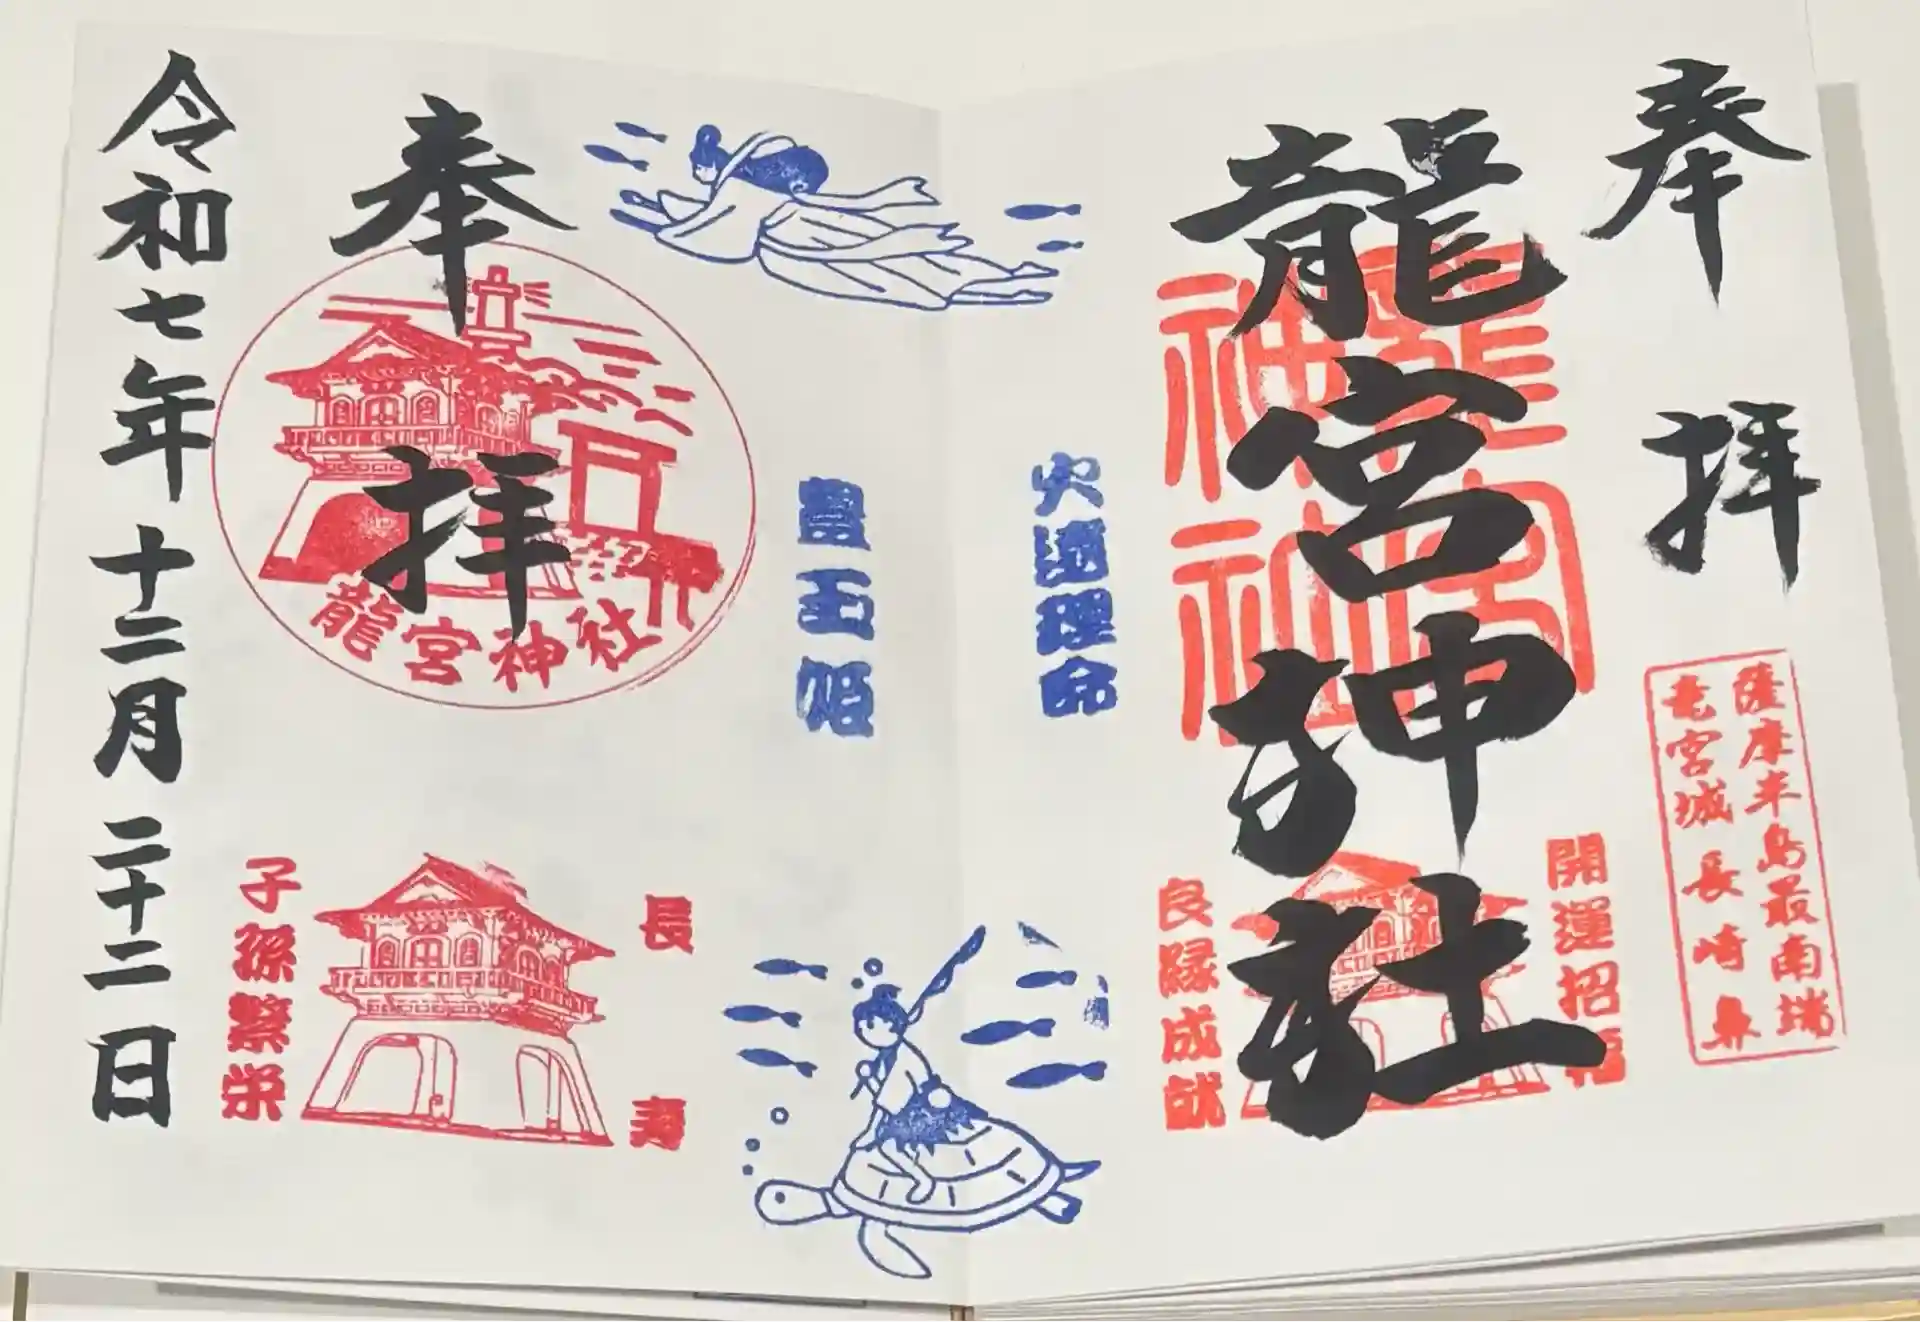 奉拝
薩摩半島最南端
竜宮城長崎鼻
龍宮神社
龍宮
神社
開運招福
良縁成就
火遠理命
豊玉姫
奉拝
龍宮神社
長寿
子孫繁栄
令和七年十二月二十二日